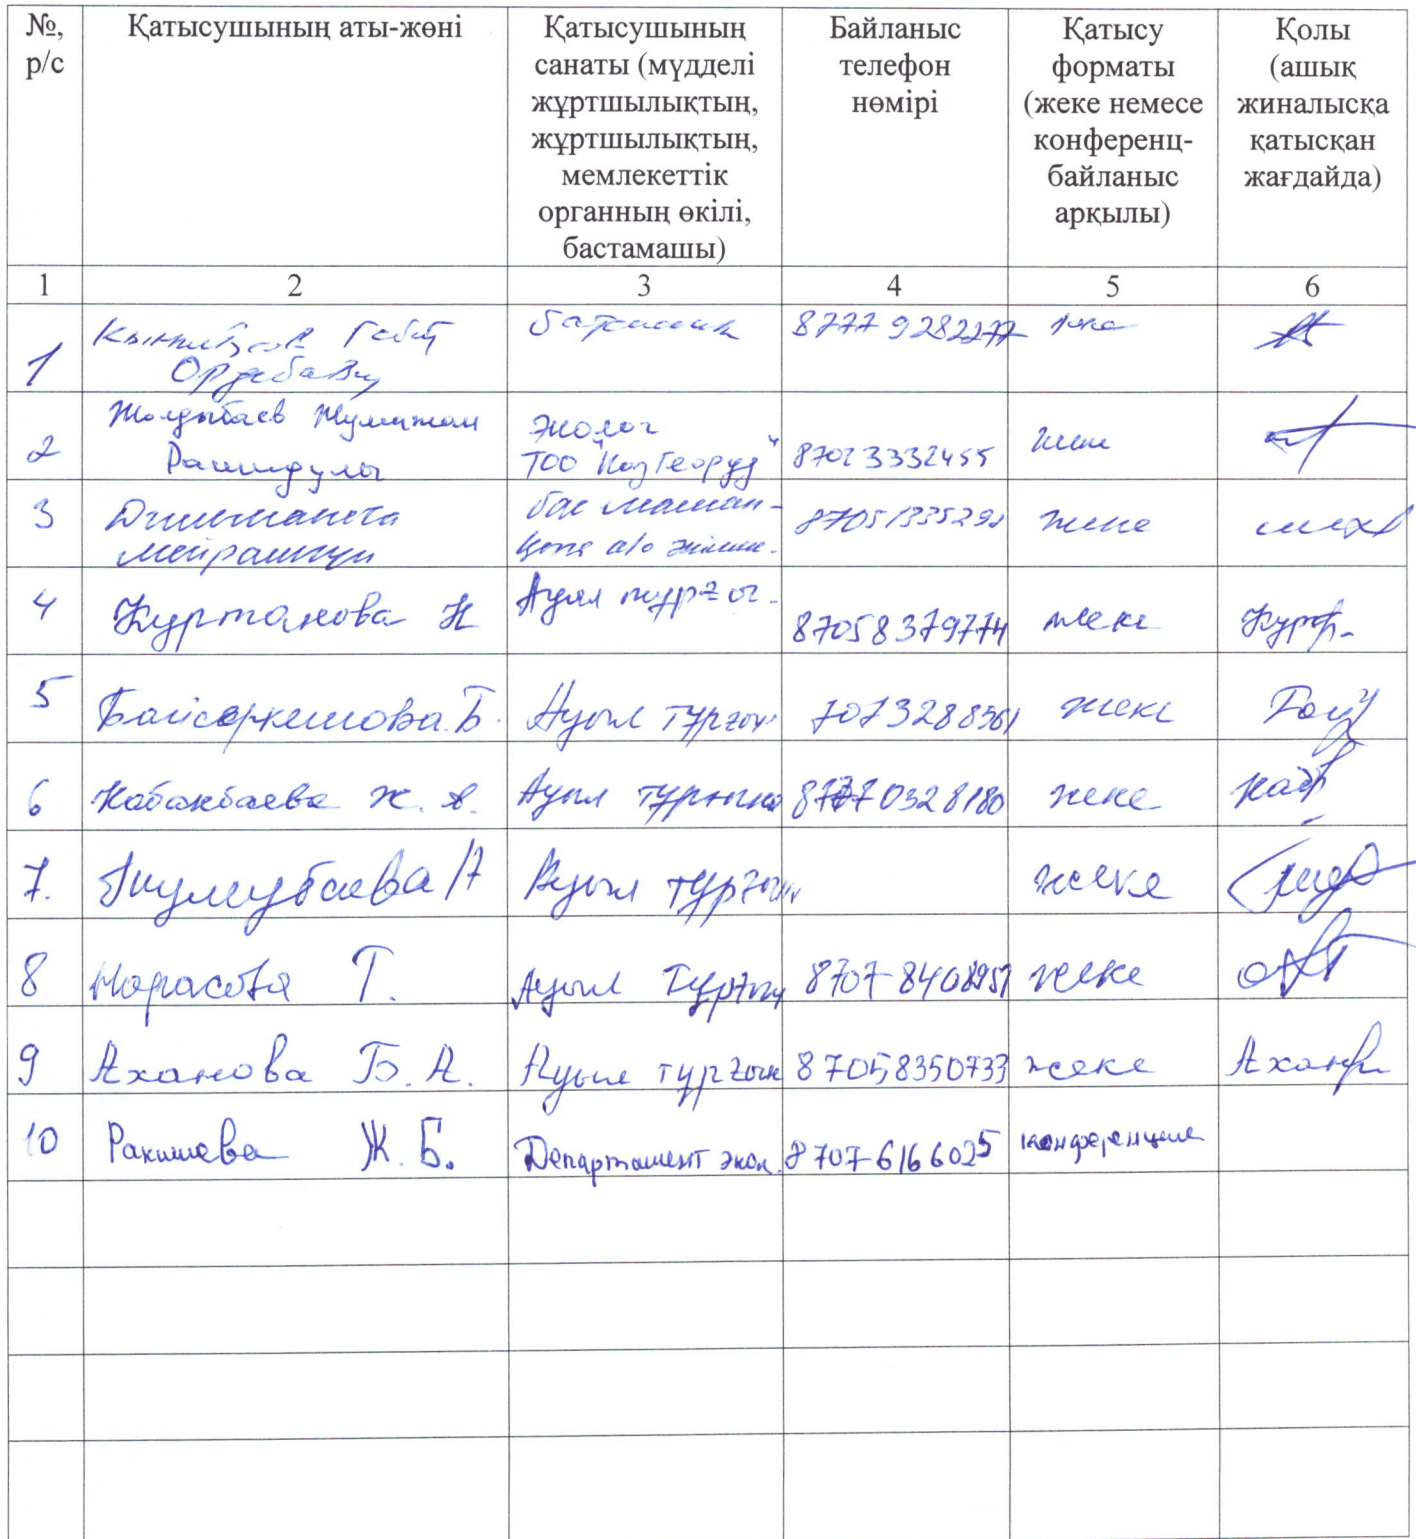 №, р/с
Қатысушының аты-жөні
Қатысушының санаты (мүдделі жұртшылықтың, жұртшылықтың, мемлекеттік органның өкілі, бастамашы)
Байланыс телефон нөмірі
Қатысу форматы (жеке немесе конференц-байланыс арқылы)
Қолы (ашық жиналысқа қатысқан жағдайда)
1 2 3 4 5 6
1 87779282277
2 Жолдыбаев Жумажан Рашидулы Эколог ТОО "КазГеоруд" 87023332455 жеке
3 Мейрамгүл бас маман- 87051335292 жеке
4 Куртанова К Ауыл тұрғ 87058379774 жеке
5 Байсеркешова.Б. Ауыл тұрғын 7073288561 жеке
6 Кабакбаева Ж. А. Ауыл тұрғыны 87770328180 жеке
7. Ауыл тұрғын жеке
8 Нарасова Т. Ауыл Тұрғын 87078408957 жеке
9 Аханова Б. А. Ауыл тұрғын 87058350733 жеке
10 Ракишева Ж. Б. Департамент экол. 87076166025 конференция